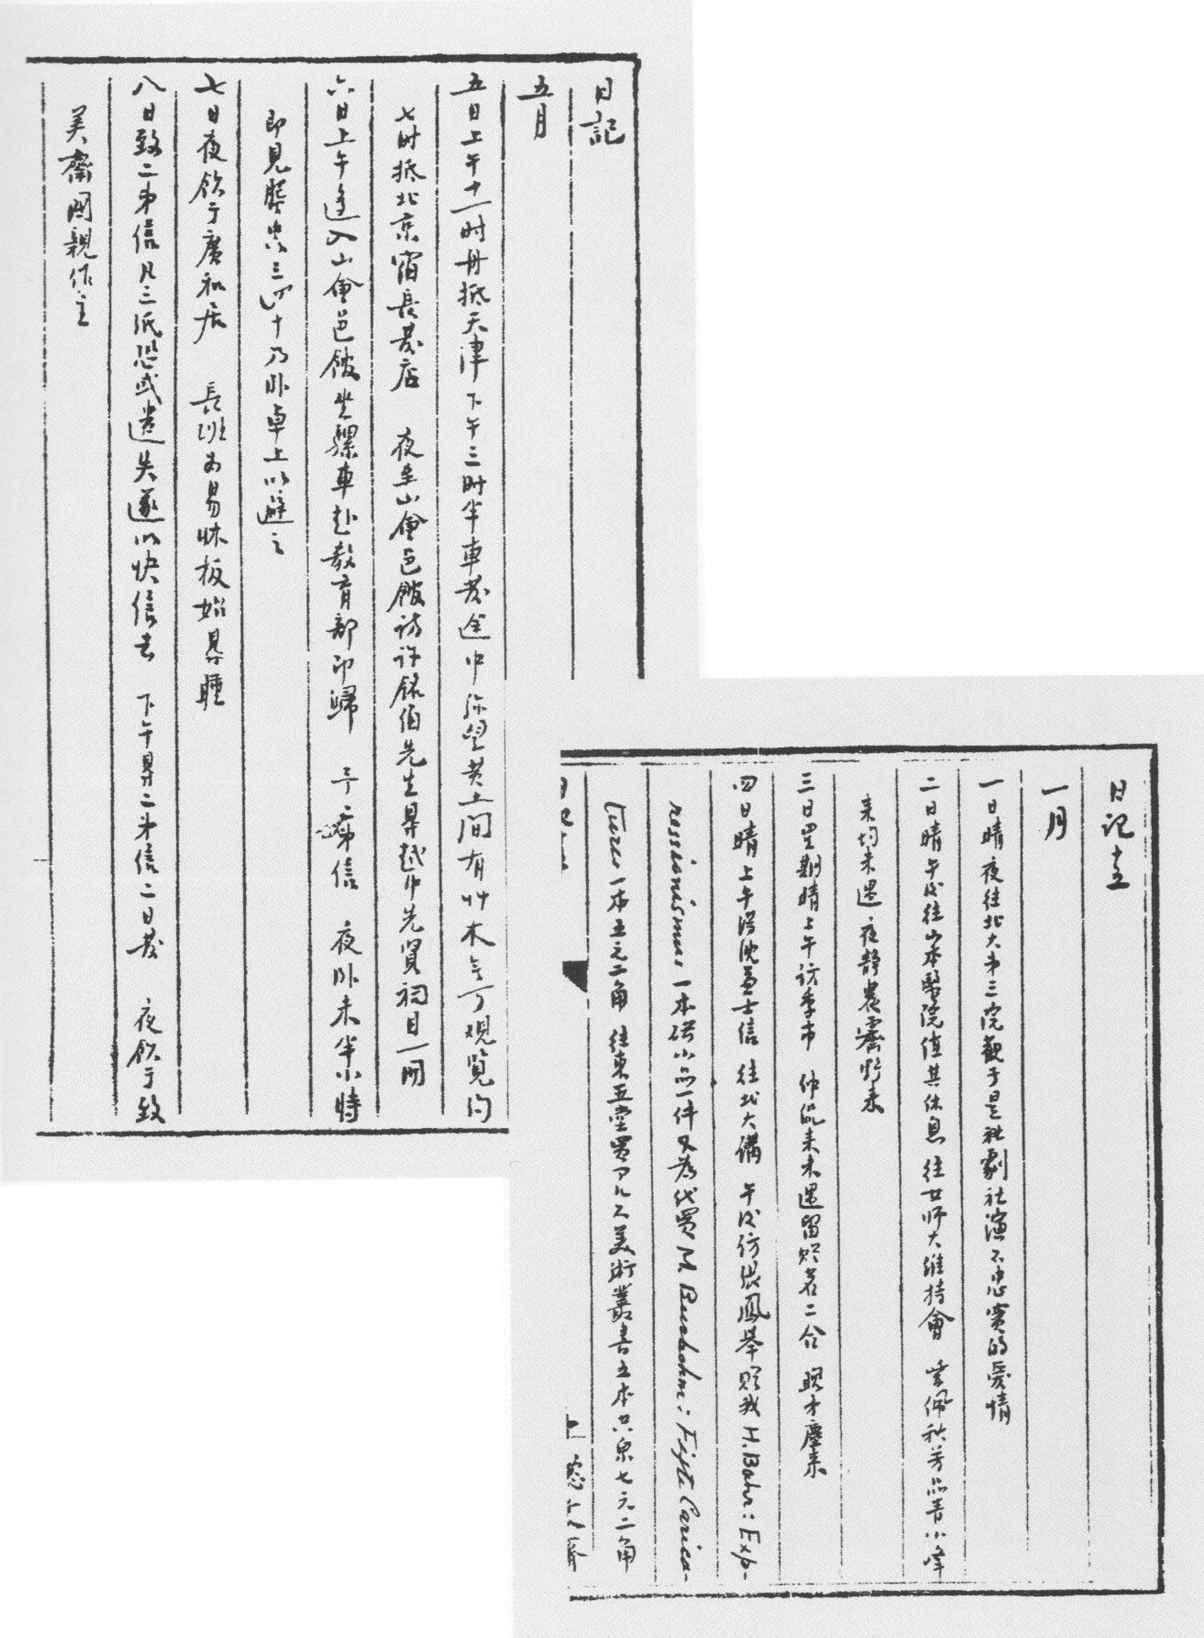 日記
五月
五日上午十一时舟抵天津下午三时半車发途中弥望黄土间有艸木无可观覧约
七时抵北京宿長发店 夜至山會邑館访许铭伯先生㝵越中先賢祠目一册
六日上午迻入山會邑館坐騾車赴教育部卽歸 予二弟信 夜卧未半小時
卽見蜰虫三四十乃卧卓上以避之
七日夜飲于廣和居 長班为易牀板始㝵睡
八日致二弟信凡三紙恐或遺失遂以快信去 下午㝵二弟信二日发 夜飲于致
美齋国親作主
日记十五
一月
一日晴夜往北大第三院觀于是社劇社演不忠實的愛情
二日晴午后往山本醫院值其休息 往女师大維持會 紫佩秋芳品青小峰
来均未遇 夜静農霽野来
三日星期晴上午访季巿 仲侃来未遇留贈茗二合 晚寿塵来
四日晴上午㝵沈兼士信 往北大講 午后仿張鳳举贈我 H.Bahr: Exp-
ressionismus 一本磁小品一件又为代買 M. Beerbohm: Fifty Carica-
tures 一本五元二角 往東亚堂買アルス美術叢書五本共泉七元二角